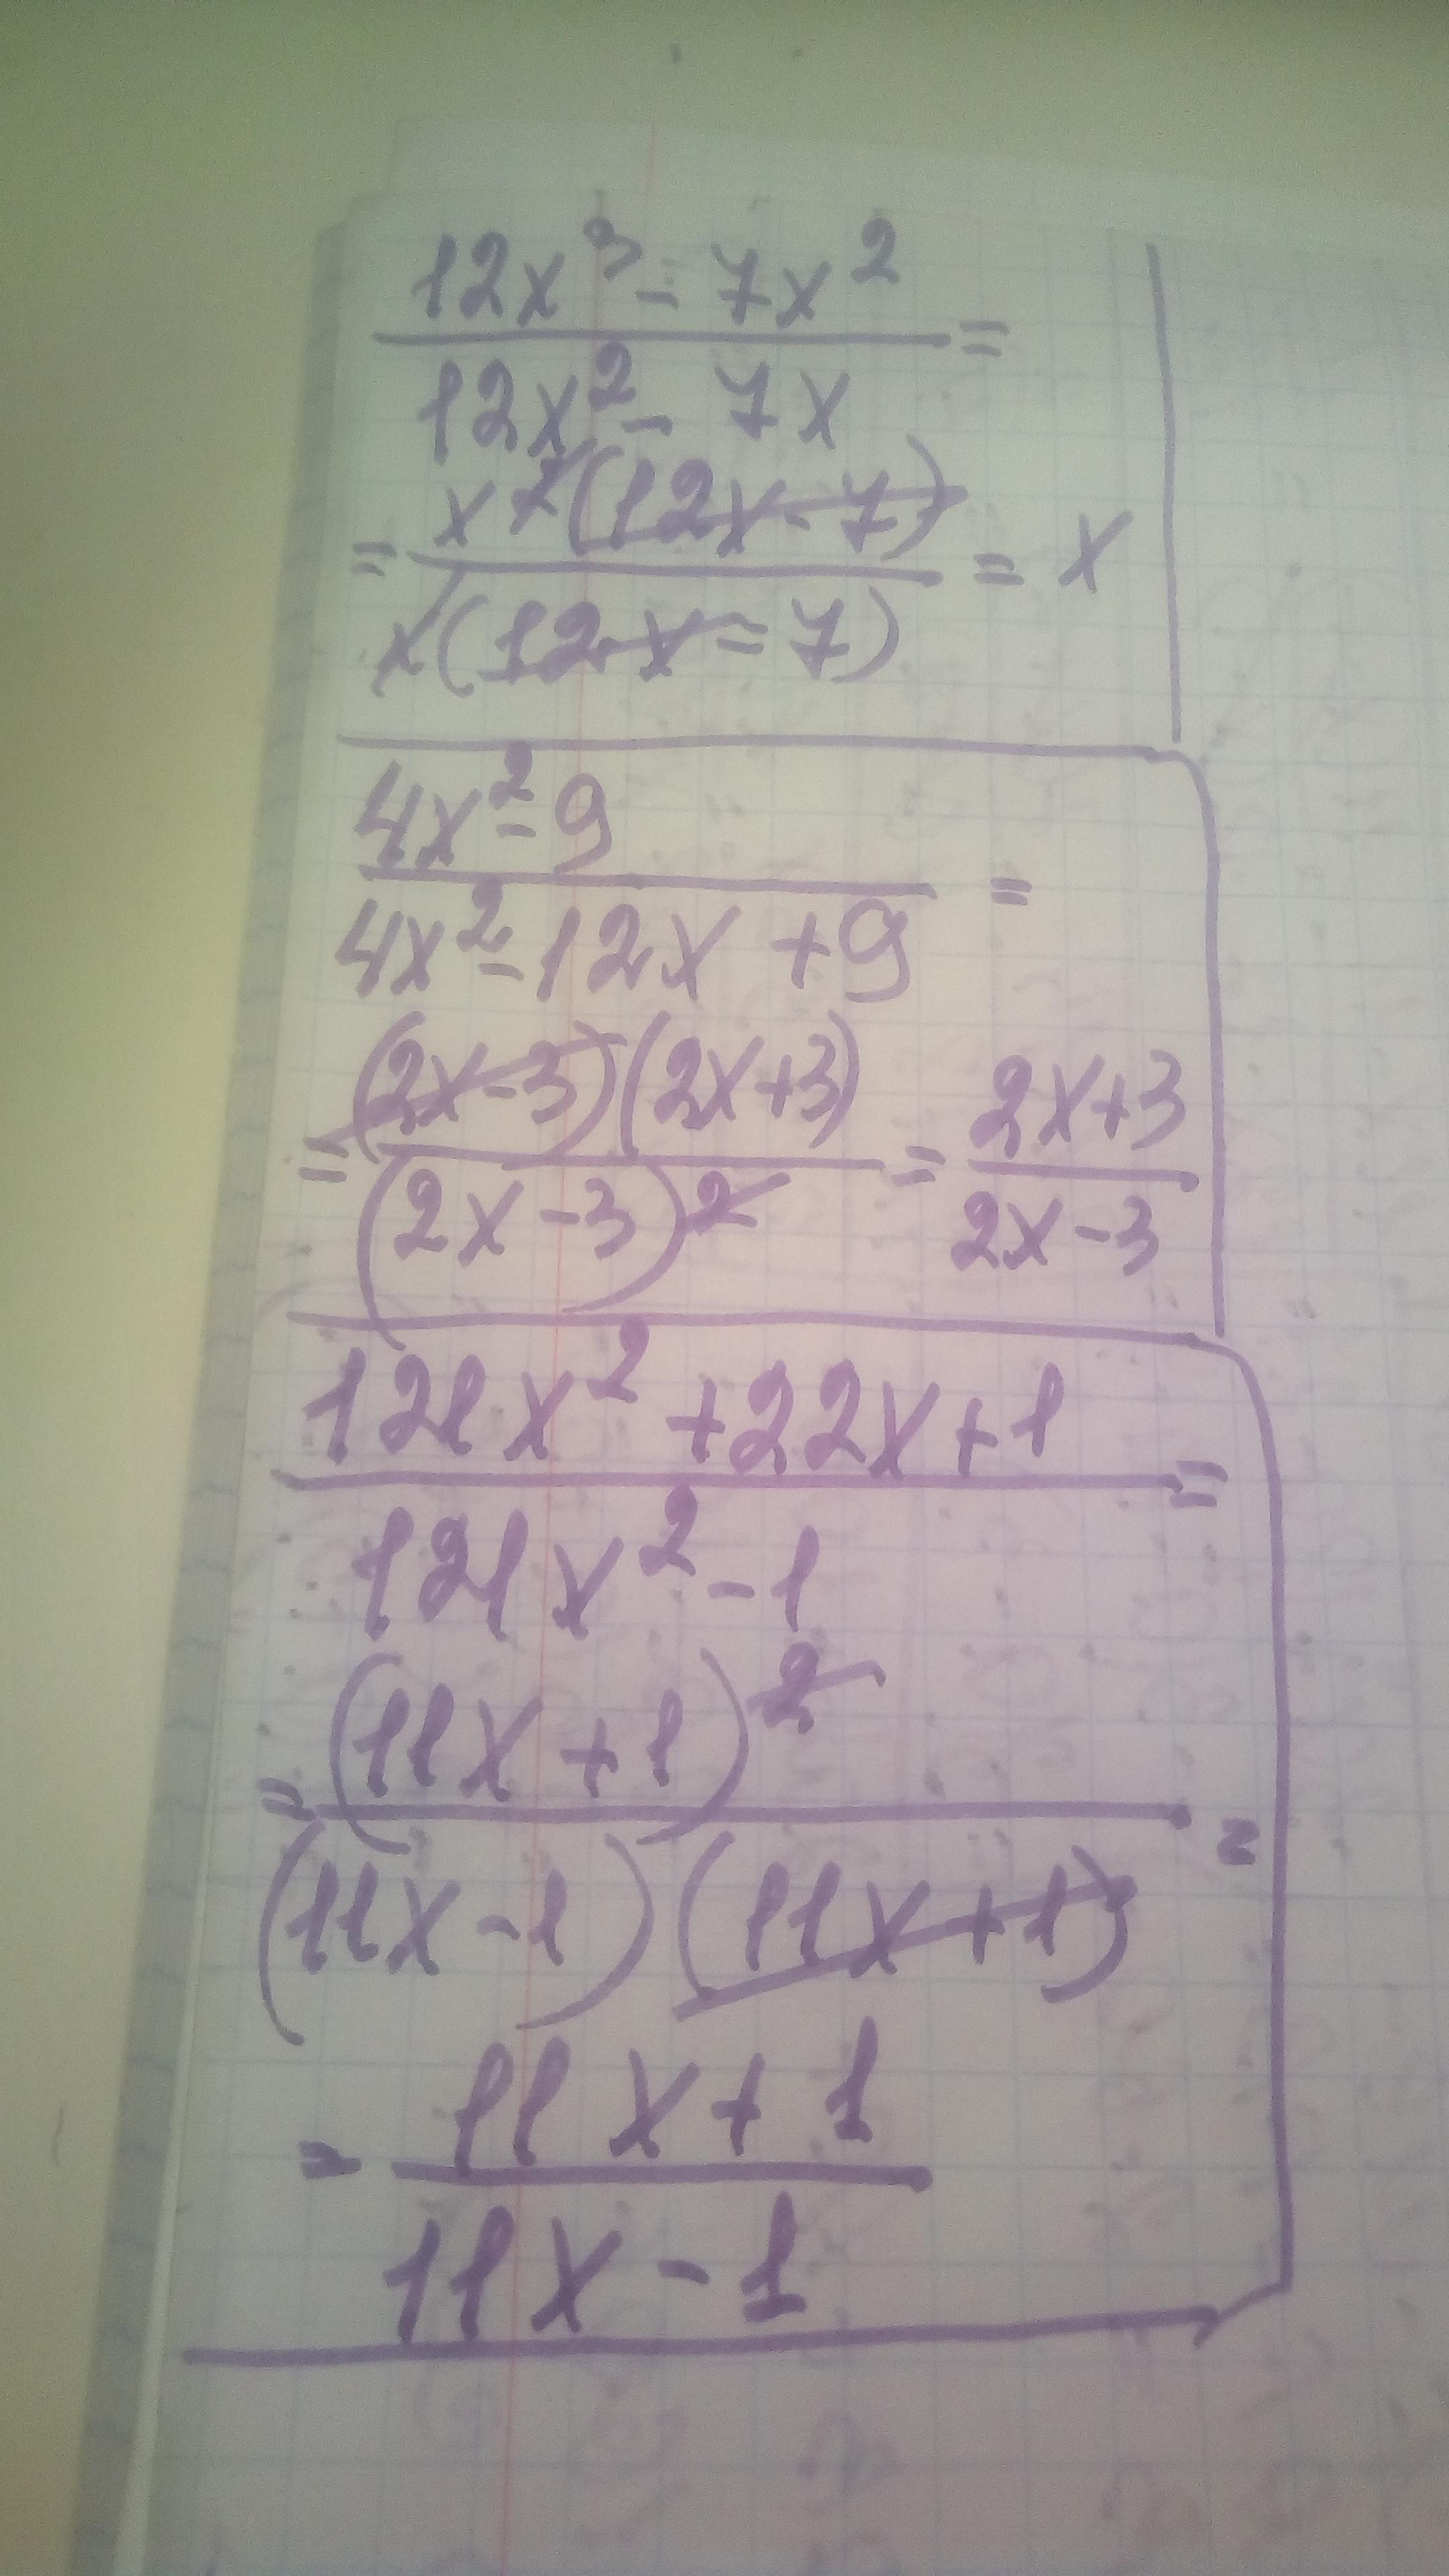 12x³ - 7x² =
12x² - 7x
= x²(12x - 7) = x
x(12x - 7)
4x² - 9 =
4x² - 12x + 9
= (2x - 3)(2x + 3) = 2x + 3
(2x - 3)² 2x - 3
121x² + 22x + 1 =
121x² - 1
= (11x + 1)² =
(11x - 1)(11x + 1)
= 11x + 1
11x - 1